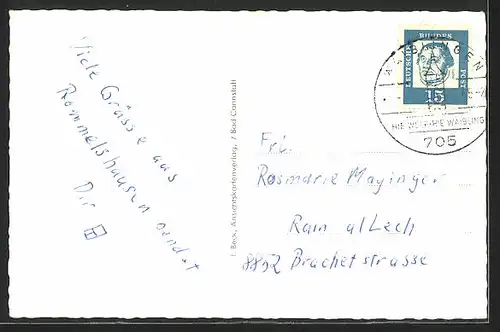 Viele Grüsse aus
Rommelshausen sendet
Dir
I. Beck, Ansichtskartenverlag, 7 Bad Cannstatt
DEUTSCHE
BUNDES
POST
15
WAIBLINGEN
705
Frl.
Rosmarie Mayinger
Rain a/Lech
8852 Brachetstrasse